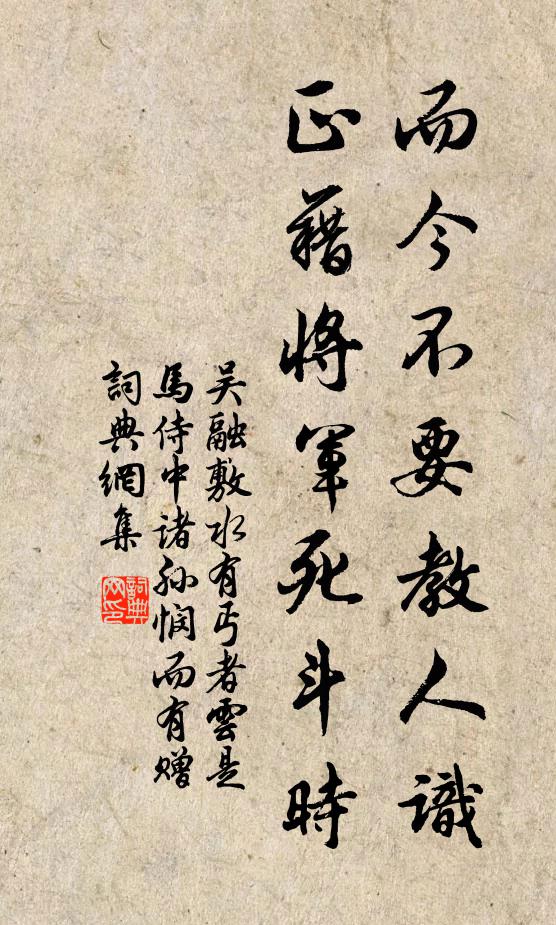 而今不要教人識
正藉將軍死斗時
吴融敷水有丐者雲是
馬侍中诸孙悯而有赠
詞典網集
詞典
网印